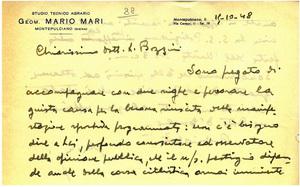 STUDIO TECNICO AGRARIO
38
GEOM. MARIO MARI
MONTEPULCIANO (SIENA)
Montepulciano, li 11-10-48
Chiarissimo Dott. L. Bozzini
Sono pregato di
accompagnare con due righe e perorare la
giusta causa per la buona riuscita della manife-
stazione sportiva programmata: non c'è bisogno
dire a Lei, profondo conoscitore ed osservatore
della opinione pubblica, che il ns/ prestigio dipen-
de anche dalla corsa ciclistica ormai imminente